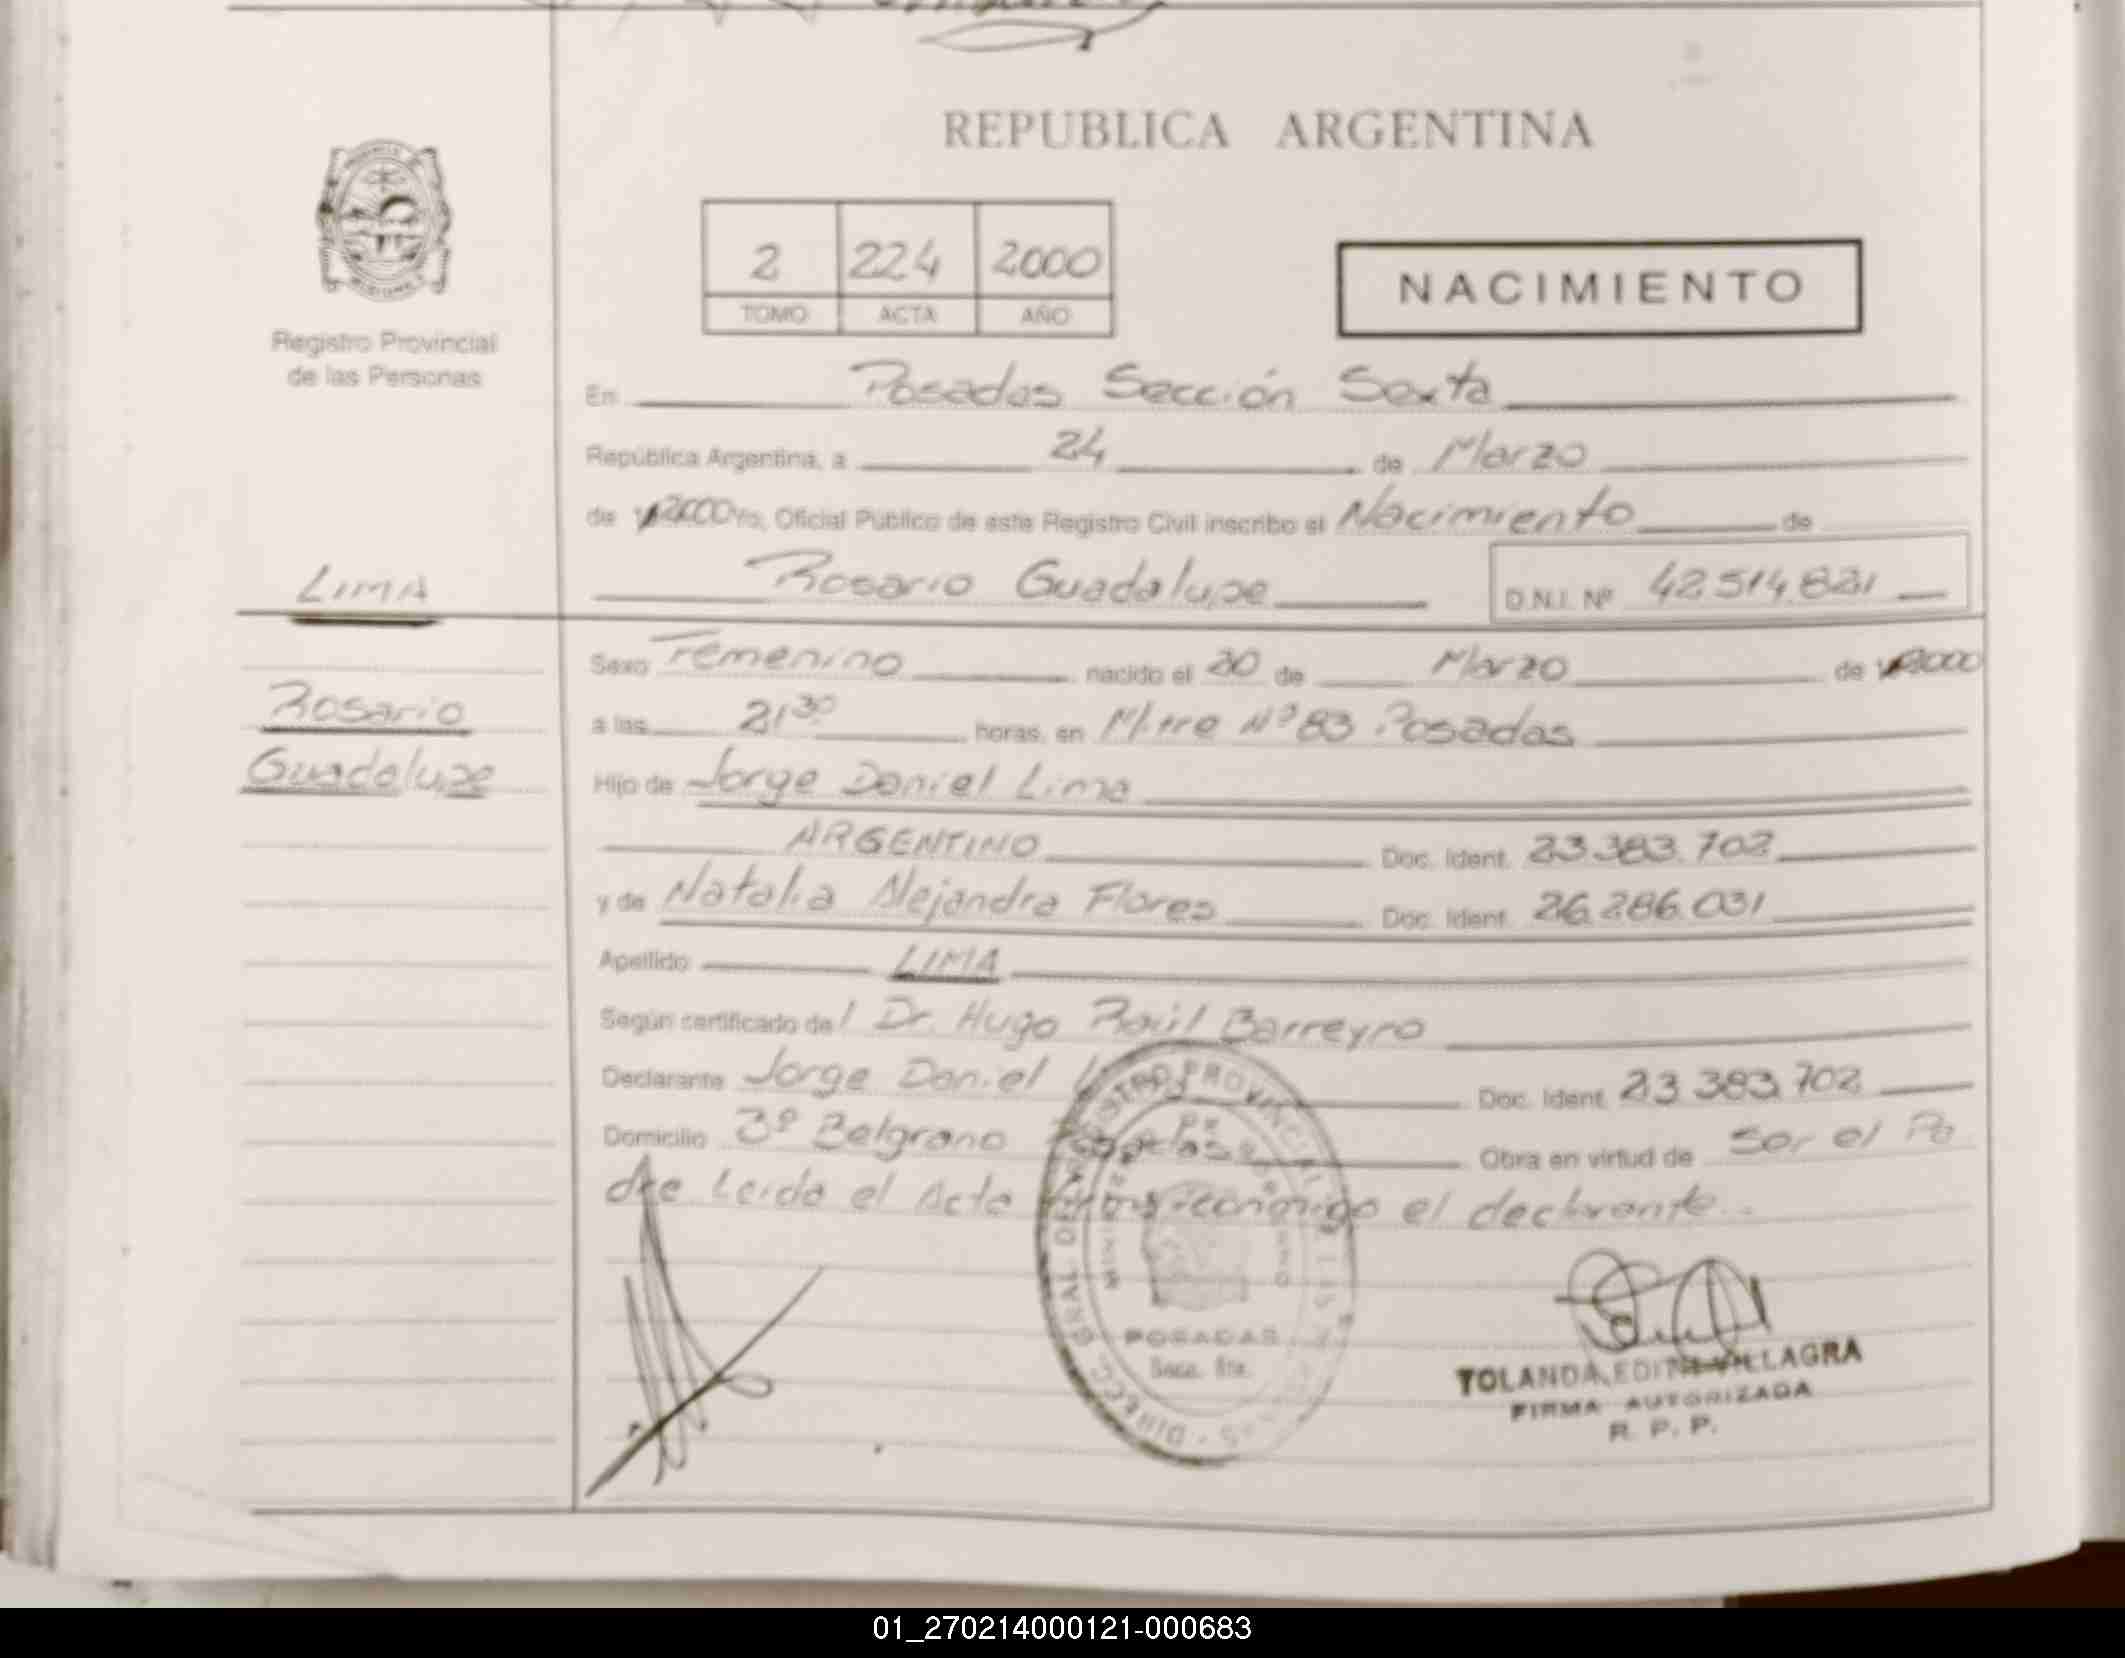 REPUBLICA ARGENTINA
2 224 2000
TOMO ACTA AÑO
NACIMIENTO
Registro Provincial
de las Personas
En Posadas Sección Sexta
República Argentina, a 24 de Marzo
de 2000 Yo, Oficial Público de este Registro Civil inscribo el Nacimiento de
LIMA
Rosario Guadalupe D.N.I. Nº 42.514.821
Sexo Femenino nacido el 20 de Marzo de 2000
Rosario
Guadalupe
a las 21 30 horas, en Mitre Nº 83 Posadas
Hijo de Jorge Daniel Lima
ARGENTINO Doc. Ident. 23.383.702
y de Natalia Alejandra Flores Doc. Ident. 26.286.031
Apellido LIMA
Según certificado del Dr. Hugo Raúl Barreyro
Declarante Jorge Daniel Doc. Ident. 23.383.702
Domicilio 3º Belgrano Posadas Obra en virtud de Ser el Pa
dre Leida el Acta conmigo el declarante..
POSADAS
Secc. 6ta.
TOLANDA EDITH VILLAGRA
FIRMA AUTORIZADA
R. P. P.
01_270214000121-000683